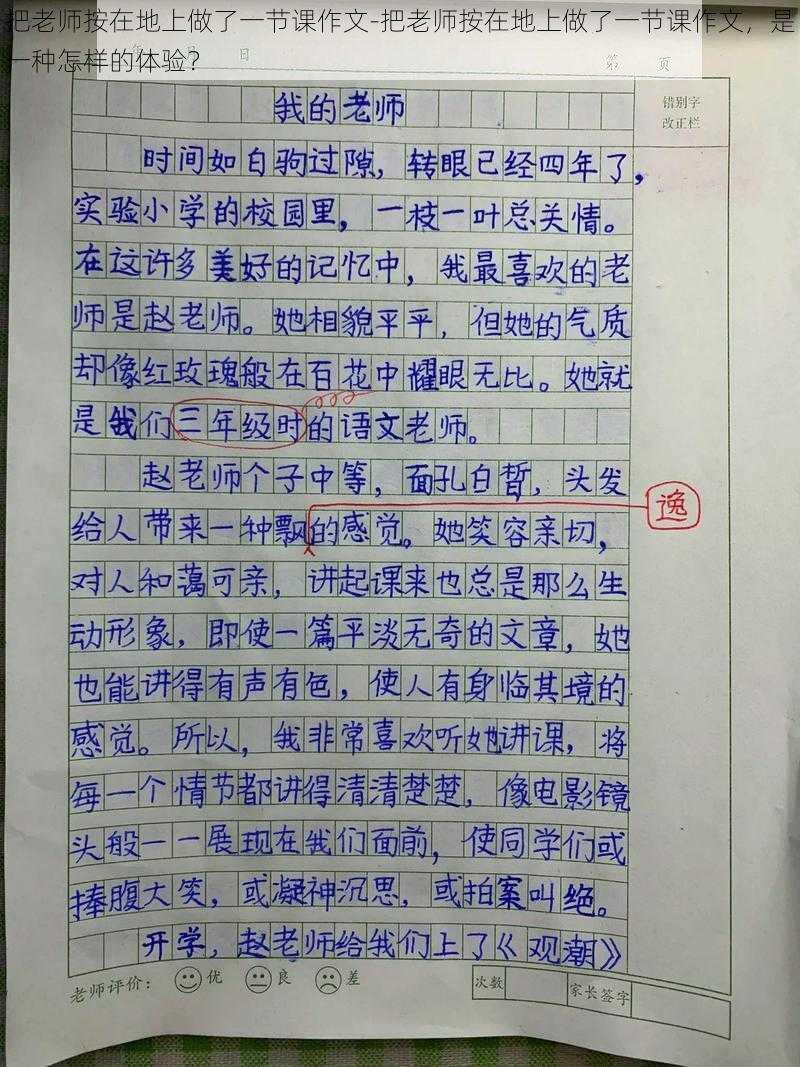 把老师按在地上做了一节课作文-把老师按在地上做了一节课作文，是
一种怎样的体验？
年 月 日
第 页
错别字
改正栏
我的老师
时间如白驹过隙，转眼已经四年了，
实验小学的校园里，一枝一叶总关情。
在这许多美好的记忆中，我最喜欢的老
师是赵老师。她相貌平平，但她的气质
却像红玫瑰般在百花中耀眼无比。她就
是我们三年级时的语文老师。
赵老师个子中等，面孔白皙，头发
给人带来一种飘的感觉。她笑容亲切，
逸
对人和蔼可亲，讲起课来也总是那么生
动形象，即使一篇平淡无奇的文章，她
也能讲得有声有色，使人有身临其境的
感觉。所以，我非常喜欢听她讲课，将
每一个情节都讲得清清楚楚，像电影镜
头般一一展现在我们面前，使同学们或
捧腹大笑，或凝神沉思，或拍案叫绝。
开学，赵老师给我们上了《观潮》
老师评价： 优 良 差
次数 家长签字